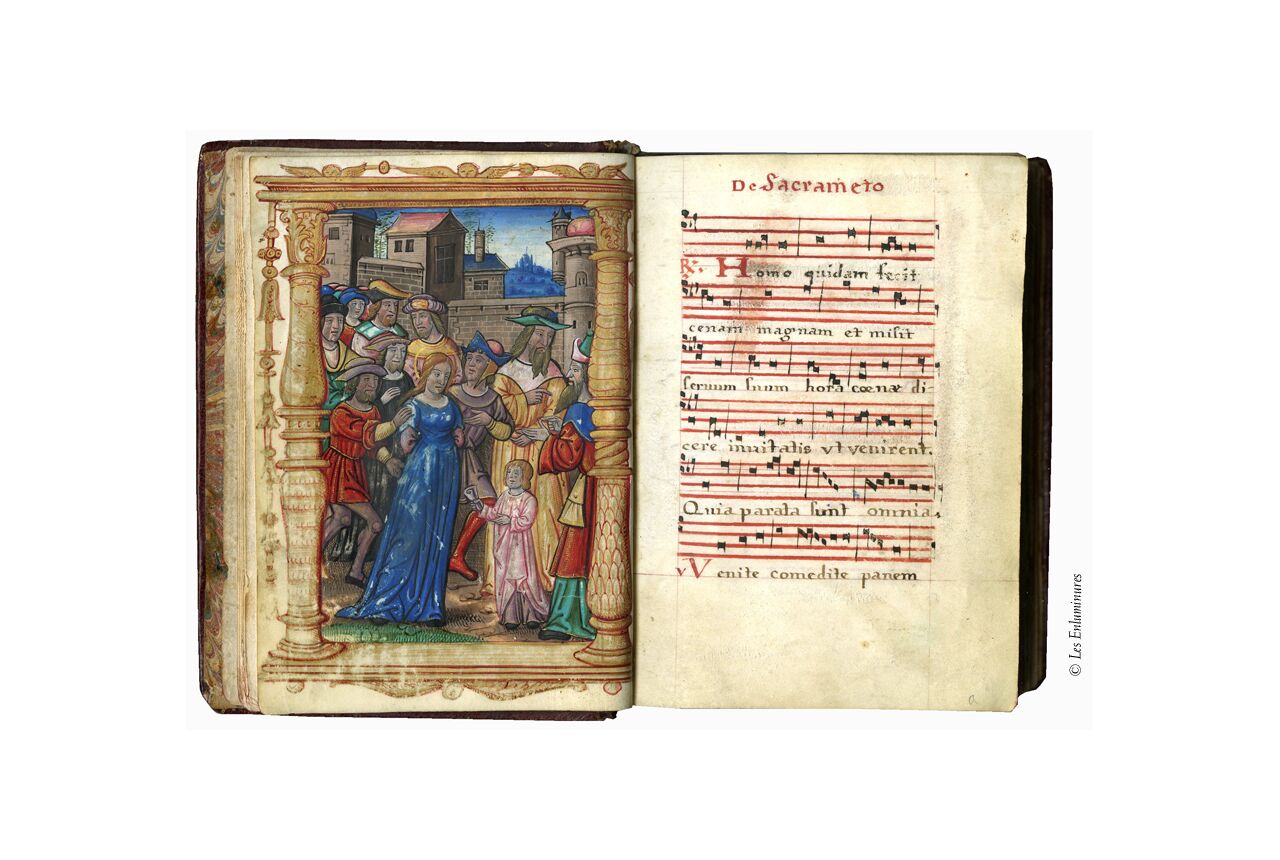 De Sacrameto
℟. Homo quidam fecit
cenam magnam et misit
seruum suum hora cœnæ di
cere inuitatis vt venirent.
Quia parata sunt omnia.
V Venite comedite panem
a
© Les Enluminures